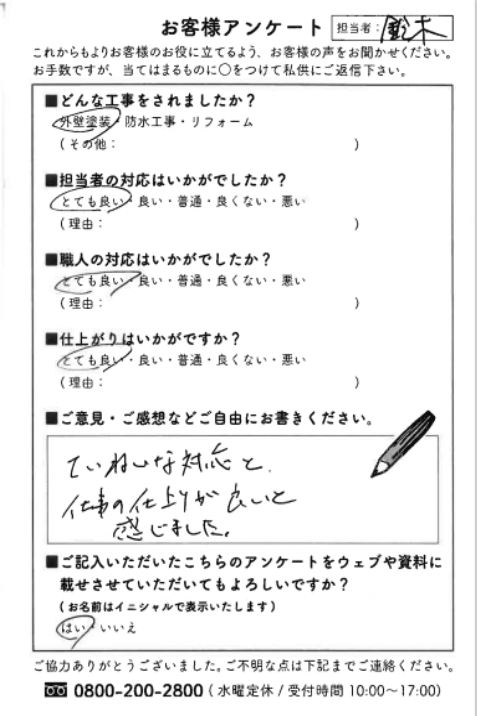 お客様アンケート 担当者：鈴木
これからもよりお客様のお役に立てるよう、お客様の声をお聞かせください。
お手数ですが、当てはまるものに○をつけて私供にご返信下さい。
■どんな工事をされましたか？
外壁塗装・防水工事・リフォーム
（その他： ）
■担当者の対応はいかがでしたか？
とても良い・良い・普通・良くない・悪い
（理由： ）
■職人の対応はいかがでしたか？
とても良い・良い・普通・良くない・悪い
（理由： ）
■仕上がりはいかがですか？
とても良い・良い・普通・良くない・悪い
（理由： ）
■ご意見・ご感想などご自由にお書きください。
ていねいな対応と、
仕事の仕上りが良いと
感じました。
■ご記入いただいたこちらのアンケートをウェブや資料に
載せさせていただいてもよろしいですか？
（お名前はイニシャルで表示いたします）
はい・いいえ
ご協力ありがとうございました。ご不明な点は下記までご連絡ください。
0800-200-2800（水曜定休/受付時間 10:00〜17:00）